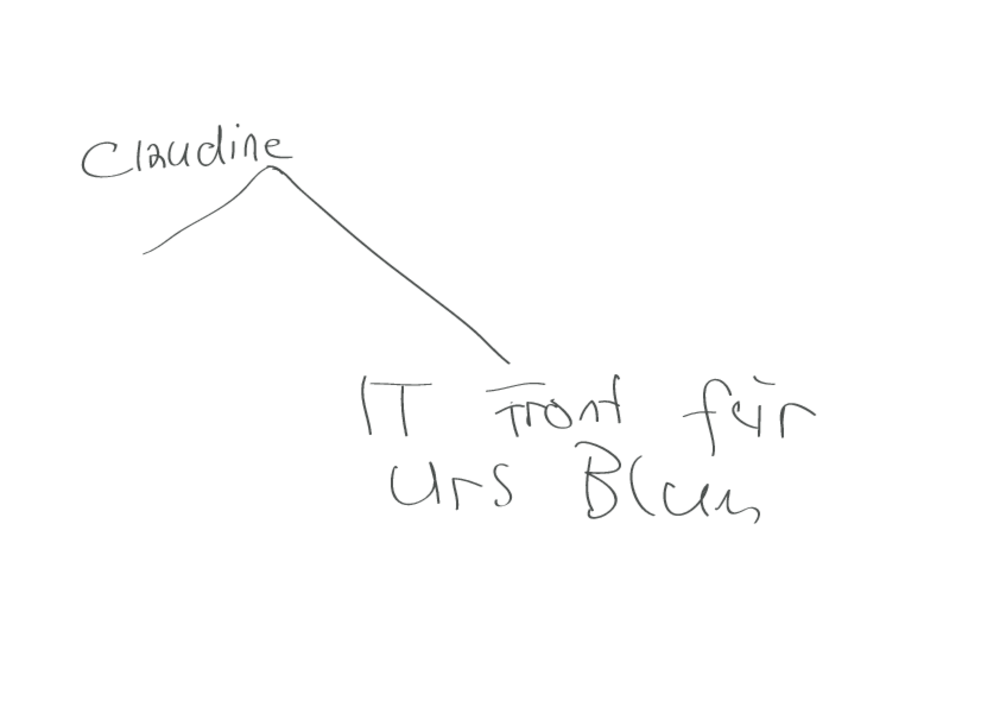 Claudine
IT Front für
Urs Blum